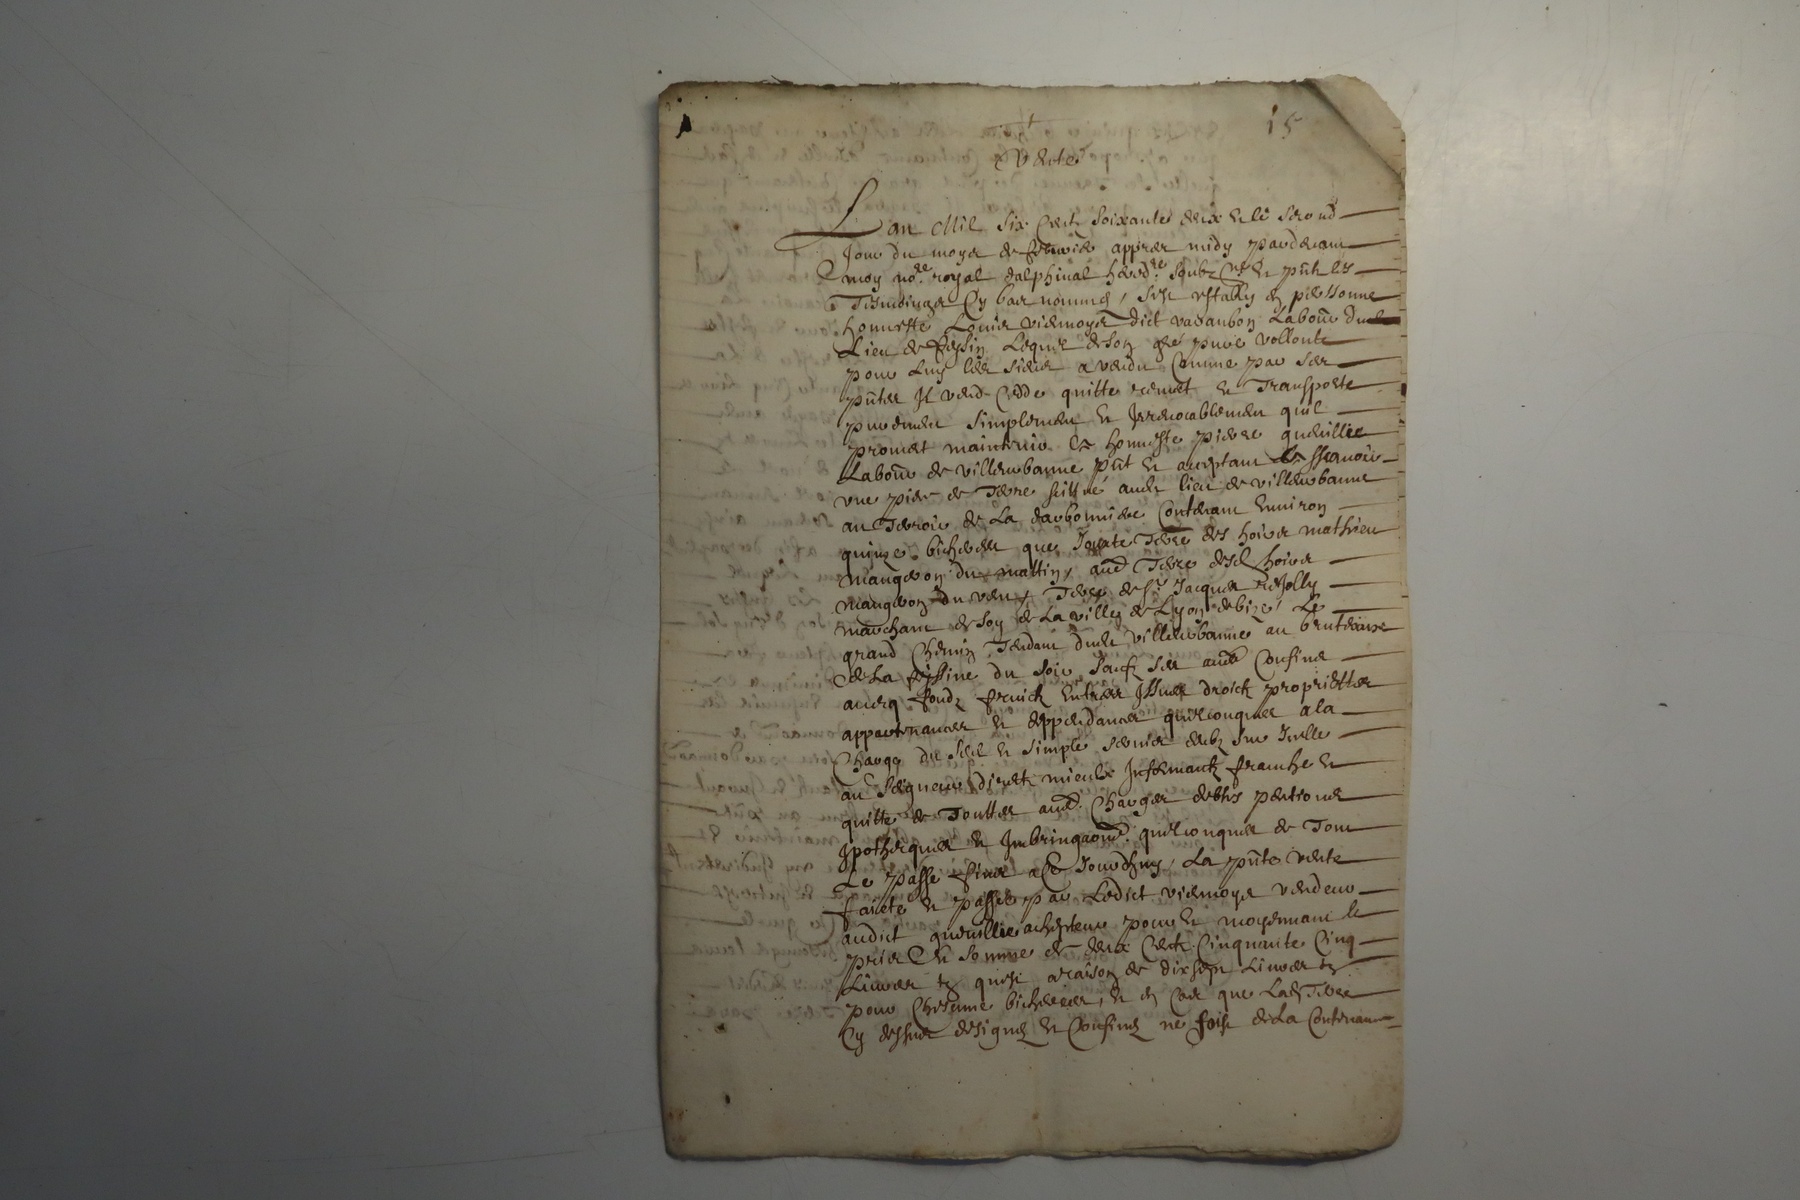 15
Vente
L an Mil six Cents soixante deux et le second
Jour du moys de febvrier appres midy pardevant
moy no.re royal dalphinal hered.re soubz.né et pñt les
Tesmoingz Cy bas nommés, s'est estably en personne
honneste Louis viemoys dict Labour. du
Lieu de feysin Lequel de son gré pure vollonte
pour Luy les siens a vendu Comme par ses
pñtes Il vend Cedde quitte remet et Transporte
purement simplement et Irrevocablement quil
promet maintenir a honneste pierre queullie
Labour. de villeurbanne pñt et acceptant assavoir
une piece de Terre scitué audt lieu de villeurbanne
au Terroir de La Contenant Environ
quinze bicherees que Terre des hoirs mathieu
mangeron du mattin, aud Terre desd hoirs
mangeron du vent, Terre de Sr. Jacques
marchant de soy de La ville de Lyon de bize Le
grand Chemin Tendant dudt villeurbanne au
de La feyssine du soir sauf ses autres Confins
avecq fondz fruictz Entrees Issues droictz proprietter
appartenances et deppendances quelconques a la
Charge du Sel et simple servier deubz sur Icelle
au seigneur direct mieulx Infermantz franche et
quitte de Touttes aud. Charges debtes pentions
Ipotheques et Imbringaons. quelconques de Tout
Le passé fins a Ce Jourdhuy, La pñte vente
faicte et passee par Ledict viemoys vendeur
audict queullie achepteur pour et moyennant le
pris et somme de deux Cents Cinquante Cinq
Livres tz quest a raison de dix sept Livres tz
pour Chescune bicheree, et en Cas que Lad Terre
Cy dessus designee et Confinee ne soit de La Contenance